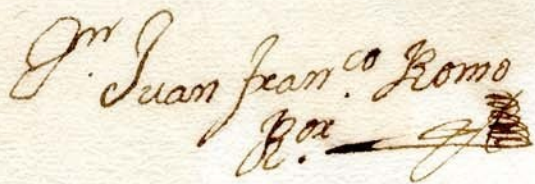 Juan fran.co Romo
R.or